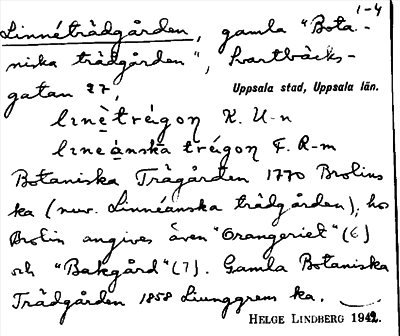 1-4
Linnéträdgården, gamla "Bota-
niska trädgården", Svartbäcks-
gatan 27,
Uppsala stad, Uppsala län.
linètrégoɳ K. U-n
lineánska trégoɳ F. R-m
Botaniska Trägården 1770 Brolins
ka (nuv. Linnéanska trädgården); hos
Brolin angives även "Orangeriet" (6)
och "Bakgård" (7). Gamla Botaniska
Trädgården 1858 Ljunggrens ka.
HELGE LINDBERG 1942.